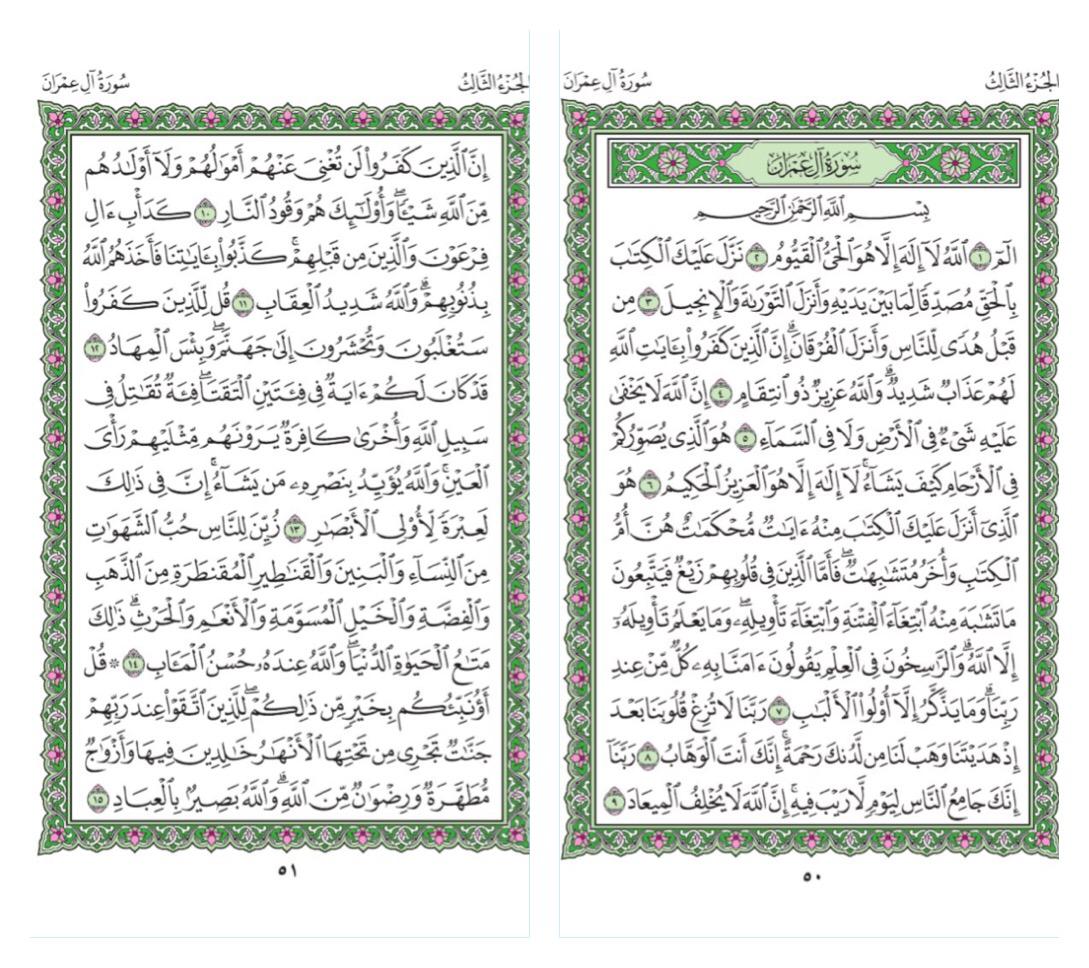 الجُزْءُ الثَّالِثُ
سُورَةُ آلِ عِمْرَانَ
سُورَةُ آلِ عِمْرَانَ
بِسْمِ ٱللَّهِ ٱلرَّحْمَٰنِ ٱلرَّحِيمِ
الٓمٓ ١ ٱللَّهُ لَآ إِلَٰهَ إِلَّا هُوَ ٱلْحَىُّ ٱلْقَيُّومُ ٢ نَزَّلَ عَلَيْكَ ٱلْكِتَٰبَ
بِٱلْحَقِّ مُصَدِّقًا لِّمَا بَيْنَ يَدَيْهِ وَأَنزَلَ ٱلتَّوْرَىٰةَ وَٱلْإِنجِيلَ ٣ مِن
قَبْلُ هُدًى لِّلنَّاسِ وَأَنزَلَ ٱلْفُرْقَانَۗ إِنَّ ٱلَّذِينَ كَفَرُوا۟ بِـَٔايَٰتِ ٱللَّهِ
لَهُمْ عَذَابٌ شَدِيدٌۗ وَٱللَّهُ عَزِيزٌ ذُو ٱنتِقَامٍ ٤ إِنَّ ٱللَّهَ لَا يَخْفَىٰ
عَلَيْهِ شَىْءٌ فِى ٱلْأَرْضِ وَلَا فِى ٱلسَّمَآءِ ٥ هُوَ ٱلَّذِى يُصَوِّرُكُمْ
فِى ٱلْأَرْحَامِ كَيْفَ يَشَآءُۚ لَآ إِلَٰهَ إِلَّا هُوَ ٱلْعَزِيزُ ٱلْحَكِيمُ ٦ هُوَ
ٱلَّذِىٓ أَنزَلَ عَلَيْكَ ٱلْكِتَٰبَ مِنْهُ ءَايَٰتٌ مُّحْكَمَٰتٌ هُنَّ أُمُّ
ٱلْكِتَٰبِ وَأُخَرُ مُتَشَٰبِهَٰتٌۖ فَأَمَّا ٱلَّذِينَ فِى قُلُوبِهِمْ زَيْغٌ فَيَتَّبِعُونَ
مَا تَشَٰبَهَ مِنْهُ ٱبْتِغَآءَ ٱلْفِتْنَةِ وَٱبْتِغَآءَ تَأْوِيلِهِۦۖ وَمَا يَعْلَمُ تَأْوِيلَهُۥٓ
إِلَّا ٱللَّهُۗ وَٱلرَّٰسِخُونَ فِى ٱلْعِلْمِ يَقُولُونَ ءَامَنَّا بِهِۦ كُلٌّ مِّنْ عِندِ
رَبِّنَاۗ وَمَا يَذَّكَّرُ إِلَّآ أُو۟لُوا۟ ٱلْأَلْبَٰبِ ٧ رَبَّنَا لَا تُزِغْ قُلُوبَنَا بَعْدَ
إِذْ هَدَيْتَنَا وَهَبْ لَنَا مِن لَّدُنكَ رَحْمَةًۚ إِنَّكَ أَنتَ ٱلْوَهَّابُ ٨ رَبَّنَآ
إِنَّكَ جَامِعُ ٱلنَّاسِ لِيَوْمٍ لَّا رَيْبَ فِيهِۚ إِنَّ ٱللَّهَ لَا يُخْلِفُ ٱلْمِيعَادَ ٩
٥٠
الجُزْءُ الثَّالِثُ
سُورَةُ آلِ عِمْرَانَ
إِنَّ ٱلَّذِينَ كَفَرُوا۟ لَن تُغْنِىَ عَنْهُمْ أَمْوَٰلُهُمْ وَلَآ أَوْلَٰدُهُم
مِّنَ ٱللَّهِ شَيْـًٔاۖ وَأُو۟لَٰٓئِكَ هُمْ وَقُودُ ٱلنَّارِ ١٠ كَدَأْبِ ءَالِ
فِرْعَوْنَ وَٱلَّذِينَ مِن قَبْلِهِمْۚ كَذَّبُوا۟ بِـَٔايَٰتِنَا فَأَخَذَهُمُ ٱللَّهُ
بِذُنُوبِهِمْۗ وَٱللَّهُ شَدِيدُ ٱلْعِقَابِ ١١ قُل لِّلَّذِينَ كَفَرُوا۟
سَتُغْلَبُونَ وَتُحْشَرُونَ إِلَىٰ جَهَنَّمَۖ وَبِئْسَ ٱلْمِهَادُ ١٢
قَدْ كَانَ لَكُمْ ءَايَةٌ فِى فِئَتَيْنِ ٱلْتَقَتَاۖ فِئَةٌ تُقَٰتِلُ فِى
سَبِيلِ ٱللَّهِ وَأُخْرَىٰ كَافِرَةٌ يَرَوْنَهُم مِّثْلَيْهِمْ رَأْىَ
ٱلْعَيْنِۚ وَٱللَّهُ يُؤَيِّدُ بِنَصْرِهِۦ مَن يَشَآءُۚ إِنَّ فِى ذَٰلِكَ
لَعِبْرَةً لِّأُو۟لِى ٱلْأَبْصَٰرِ ١٣ زُيِّنَ لِلنَّاسِ حُبُّ ٱلشَّهَوَٰتِ
مِنَ ٱلنِّسَآءِ وَٱلْبَنِينَ وَٱلْقَنَٰطِيرِ ٱلْمُقَنطَرَةِ مِنَ ٱلذَّهَبِ
وَٱلْفِضَّةِ وَٱلْخَيْلِ ٱلْمُسَوَّمَةِ وَٱلْأَنْعَٰمِ وَٱلْحَرْثِۗ ذَٰلِكَ
مَتَٰعُ ٱلْحَيَوٰةِ ٱلدُّنْيَاۖ وَٱللَّهُ عِندَهُۥ حُسْنُ ٱلْمَـَٔابِ ١٤ ۞ قُلْ
أَؤُنَبِّئُكُم بِخَيْرٍ مِّن ذَٰلِكُمْۖ لِلَّذِينَ ٱتَّقَوْا۟ عِندَ رَبِّهِمْ
جَنَّٰتٌ تَجْرِى مِن تَحْتِهَا ٱلْأَنْهَٰرُ خَٰلِدِينَ فِيهَا وَأَزْوَٰجٌ
مُّطَهَّرَةٌ وَرِضْوَٰنٌ مِّنَ ٱللَّهِۗ وَٱللَّهُ بَصِيرٌۢ بِٱلْعِبَادِ ١٥
٥١